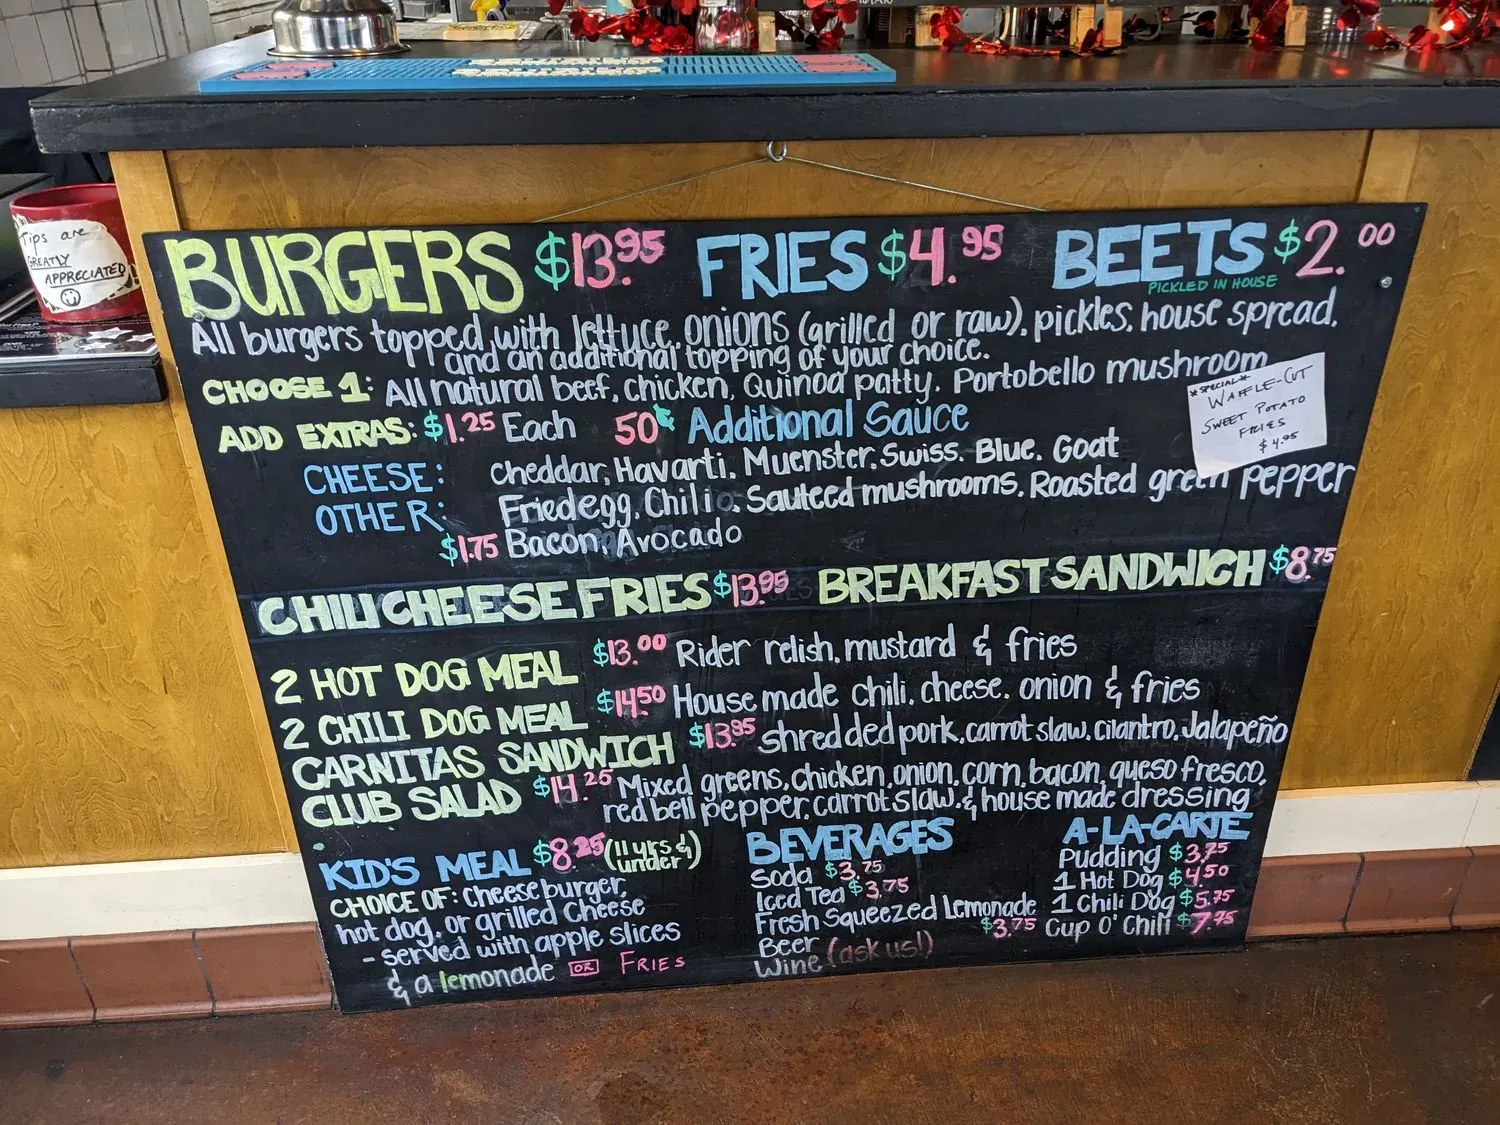 Tips are
GREATLY
APPRECIATED
BURGERS $13.95 FRIES $4.95 BEETS $2.00
PICKLED IN HOUSE
All burgers topped with lettuce, onions (grilled or raw), pickles, house spread,
and an additional topping of your choice.
CHOOSE 1: All natural beef, chicken, Quinoa patty, Portobello mushroom
*SPECIAL*
WAFFLE-CUT
SWEET POTATO
FRIES
$4.95
ADD EXTRAS: $1.25 Each 50¢ Additional Sauce
CHEESE: cheddar, Havarti, Muenster, Swiss, Blue, Goat
OTHER: Fried egg, Chili, Sauteed mushrooms, Roasted green pepper
$1.75 Bacon, Avocado
CHILI CHEESE FRIES $13.95 BREAKFAST SANDWICH $8.75
2 HOT DOG MEAL $13.00 Rider relish, mustard & fries
2 CHILI DOG MEAL $14.50 House made chili, cheese, onion & fries
CARNITAS SANDWICH $13.95 shredded pork, carrot slaw, cilantro, Jalapeño
CLUB SALAD $14.25 Mixed greens, chicken, onion, corn, bacon, queso fresco,
red bell pepper, carrot slaw, & house made dressing
KID'S MEAL $8.25 (11 yrs & under)
CHOICE OF: Cheeseburger,
hot dog, or grilled cheese
- served with apple slices
& a lemonade OR FRIES
BEVERAGES
Soda $3.75
Iced Tea $3.75
Fresh Squeezed Lemonade
$3.75
Beer
Wine (ask us!)
A-LA-CARTE
Pudding $3.75
1 Hot Dog $4.50
1 Chili Dog $5.75
Cup O' Chili $7.75